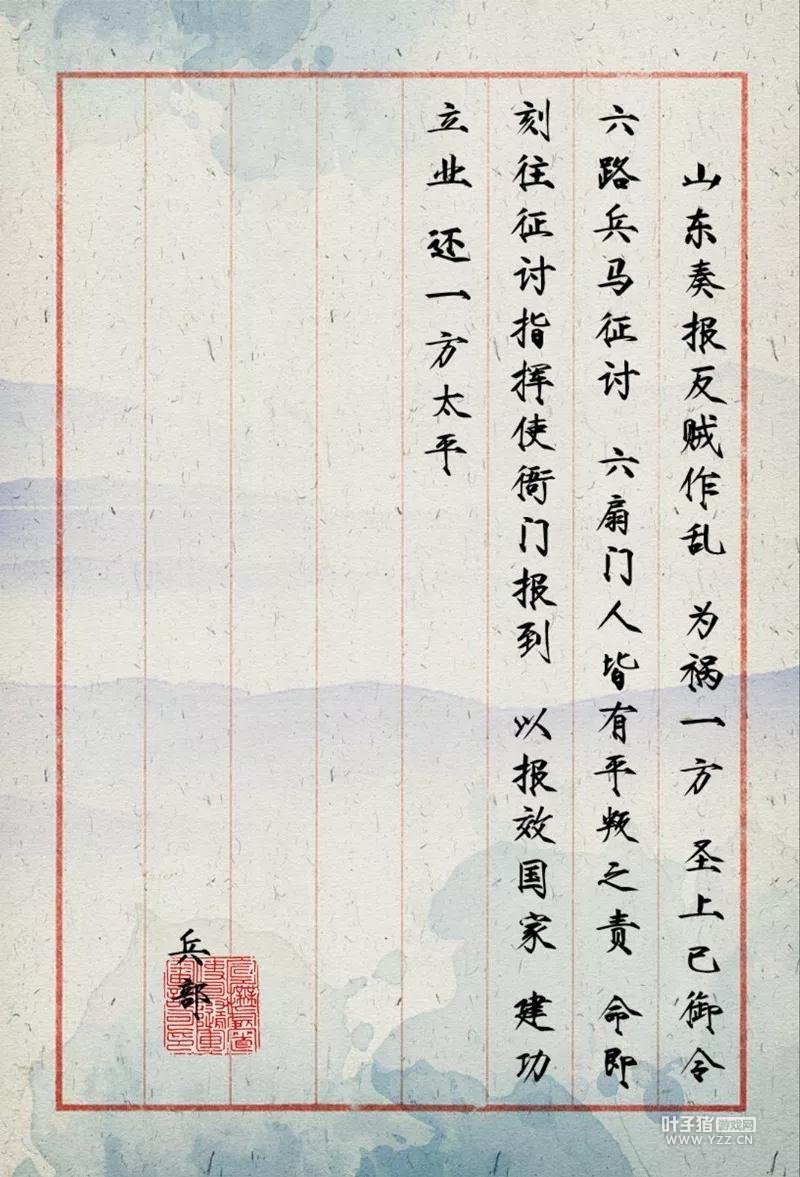 山东奏报反贼作乱 为祸一方 圣上已御令
六路兵马征讨 六扇门人皆有平叛之责 命即
刻往征讨指挥使衙门报到 以报效国家 建功
立业 还一方太平
兵部
叶子猪游戏网
WWW.YZZ.CN